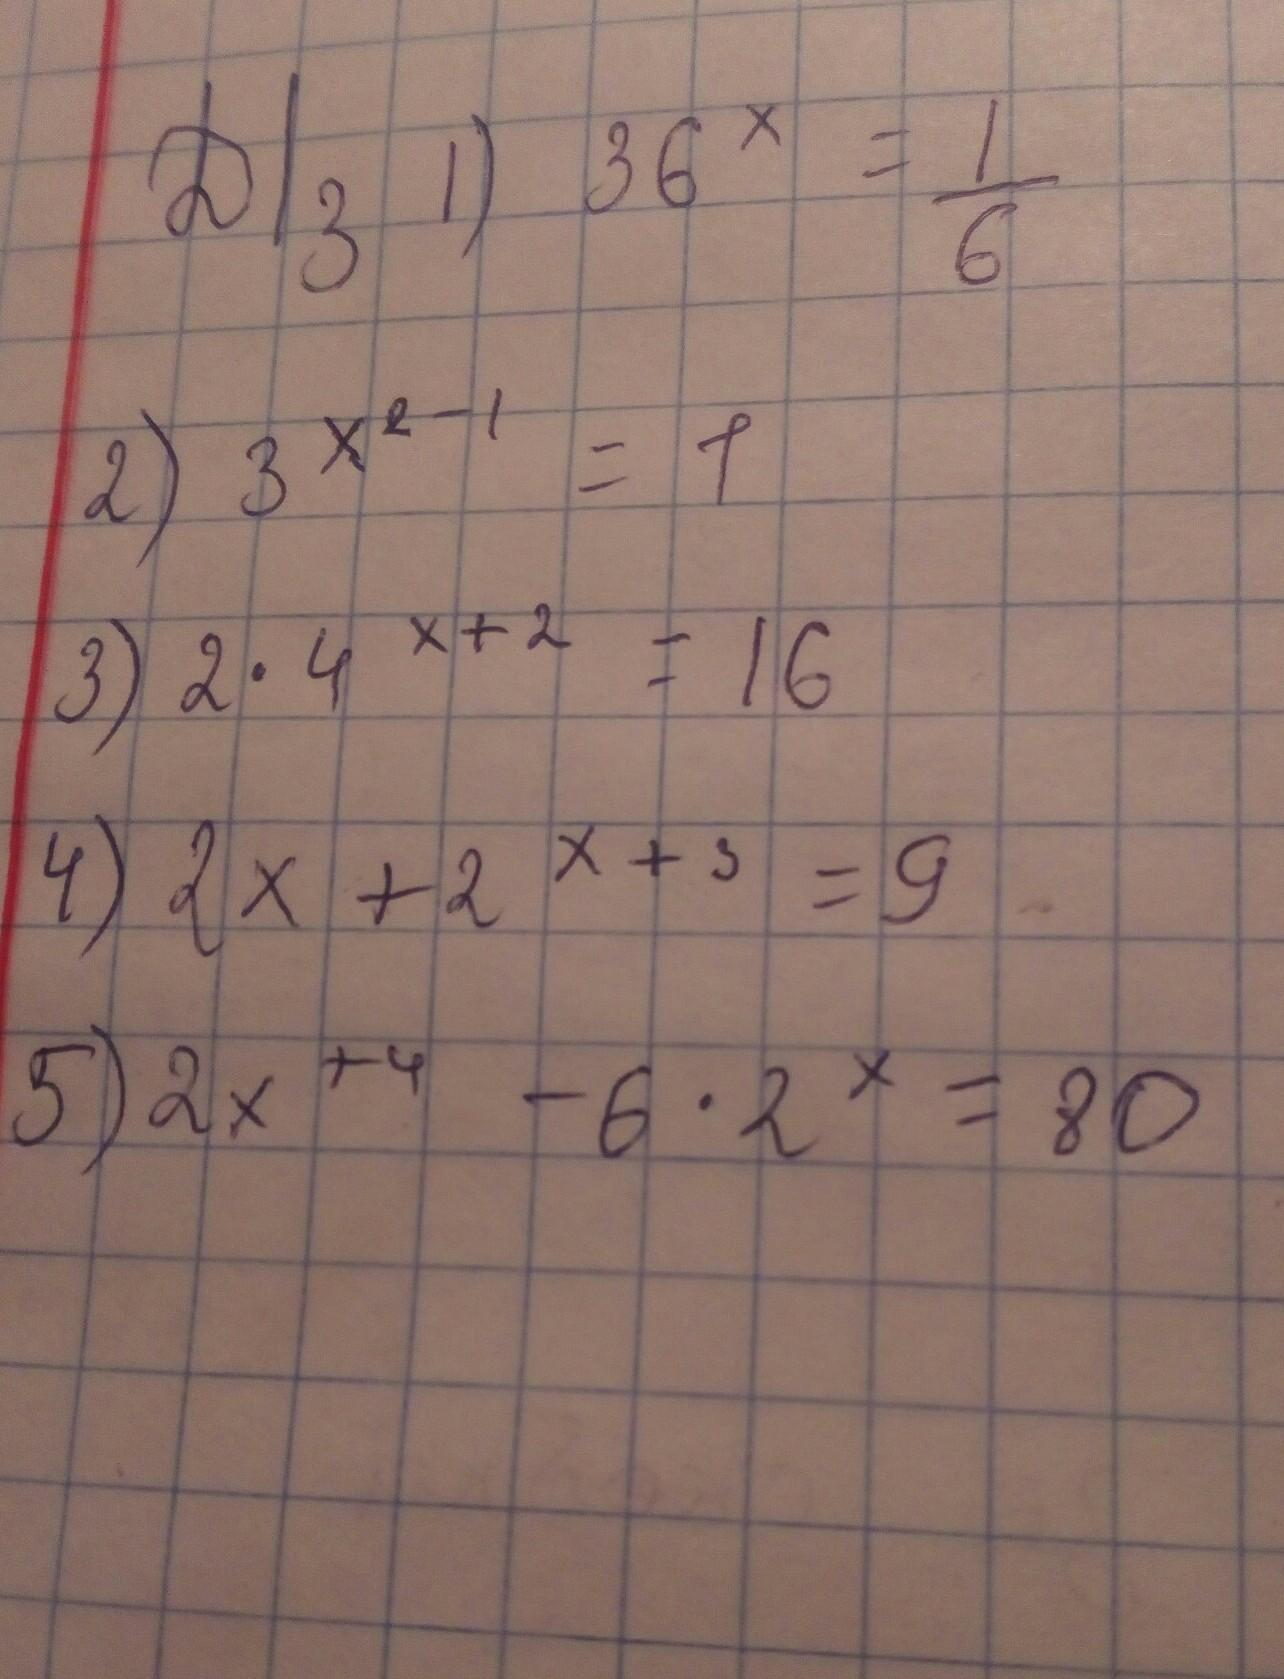 Д/з 1) 36^x = 1/6
2) 3^{x^2-1} = 1
3) 2·4^{x+2} = 16
4) 2x+2^{x+3} = 9
5) 2x^{+4} -6·2^x = 80